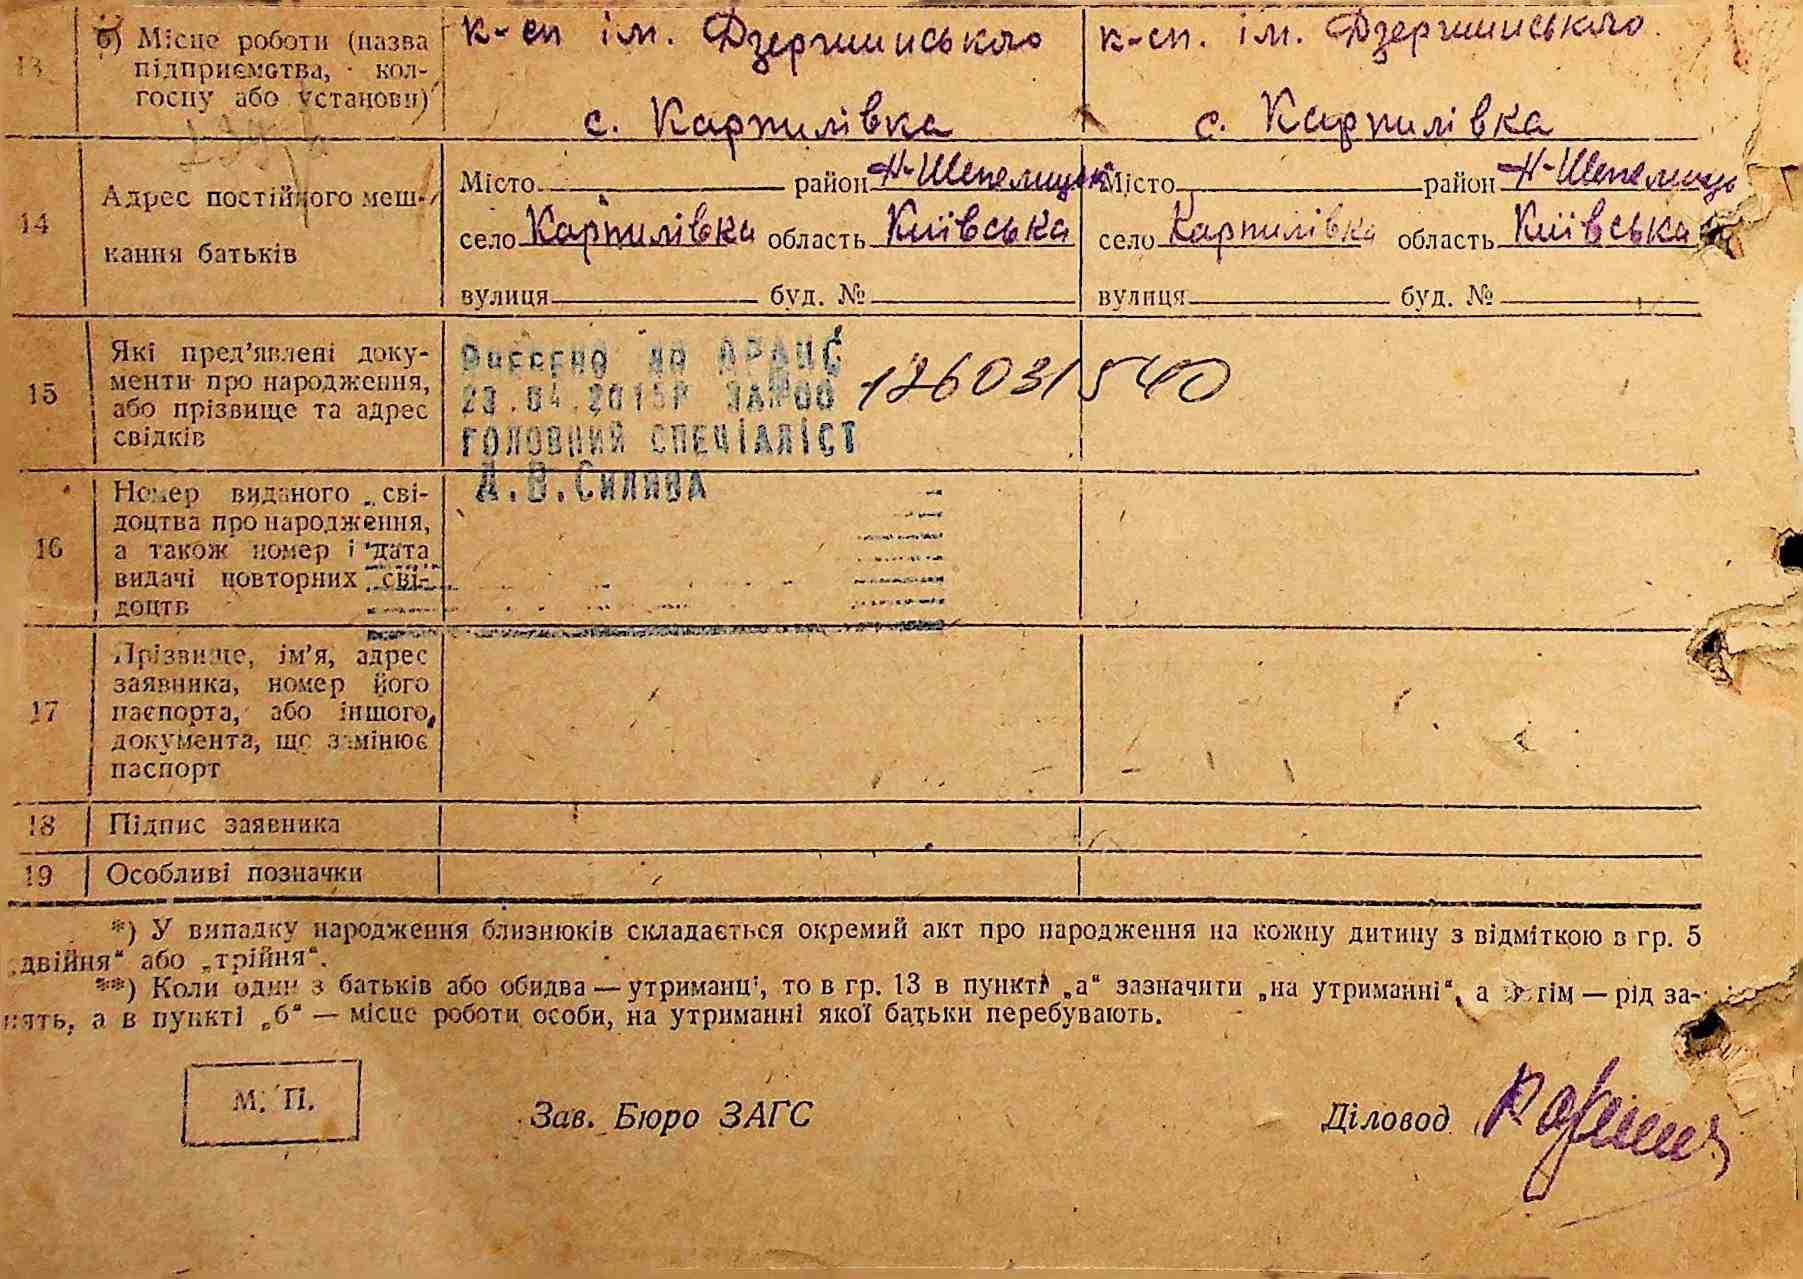 13 б) Місце роботи (назва підприємства, кол-
госпу або установи)
к-сп ім. Дзержинського
с. Карпилівка
к-сп. ім. Дзержинського.
с. Карпилівка
14 Адрес постійного меш-
кання батьків
Місто район Н-Шепелицьк
село Карпилівка область Київська
вулиця буд. №
Місто район Н-Шепелиць
село Карпилівка область Київська
вулиця буд. №
15 Які пред'явлені доку-
менти про народження,
або прізвище та адрес
свідків
Внесено до ДРАЦС
23.04.2015Р ЗА№00 126031540
ГОЛОВНИЙ СПЕЦІАЛІСТ
Д.В.Силява
16 Номер виданого сві-
доцтва про народження,
а також номер і дата
видачі повторних сві-
доцтв
17 Прізвище, ім'я, адрес
заявника, номер його
паспорта, або іншого
документа, що замінює
паспорт
18 Підпис заявника
19 Особливі позначки
*) У випадку народження близнюків складається окремий акт про народження на кожну дитину з відміткою в гр. 5
„двійня“ або „трійня“.
**) Коли один з батьків або обидва — утриманці, то в гр. 13 в пункті „а“ зазначити „на утриманні“, а потім — рід за-
нять, а в пункті „б“ — місце роботи особи, на утриманні якої батьки перебувають.
М. П.
Зав. Бюро ЗАГС
Діловод